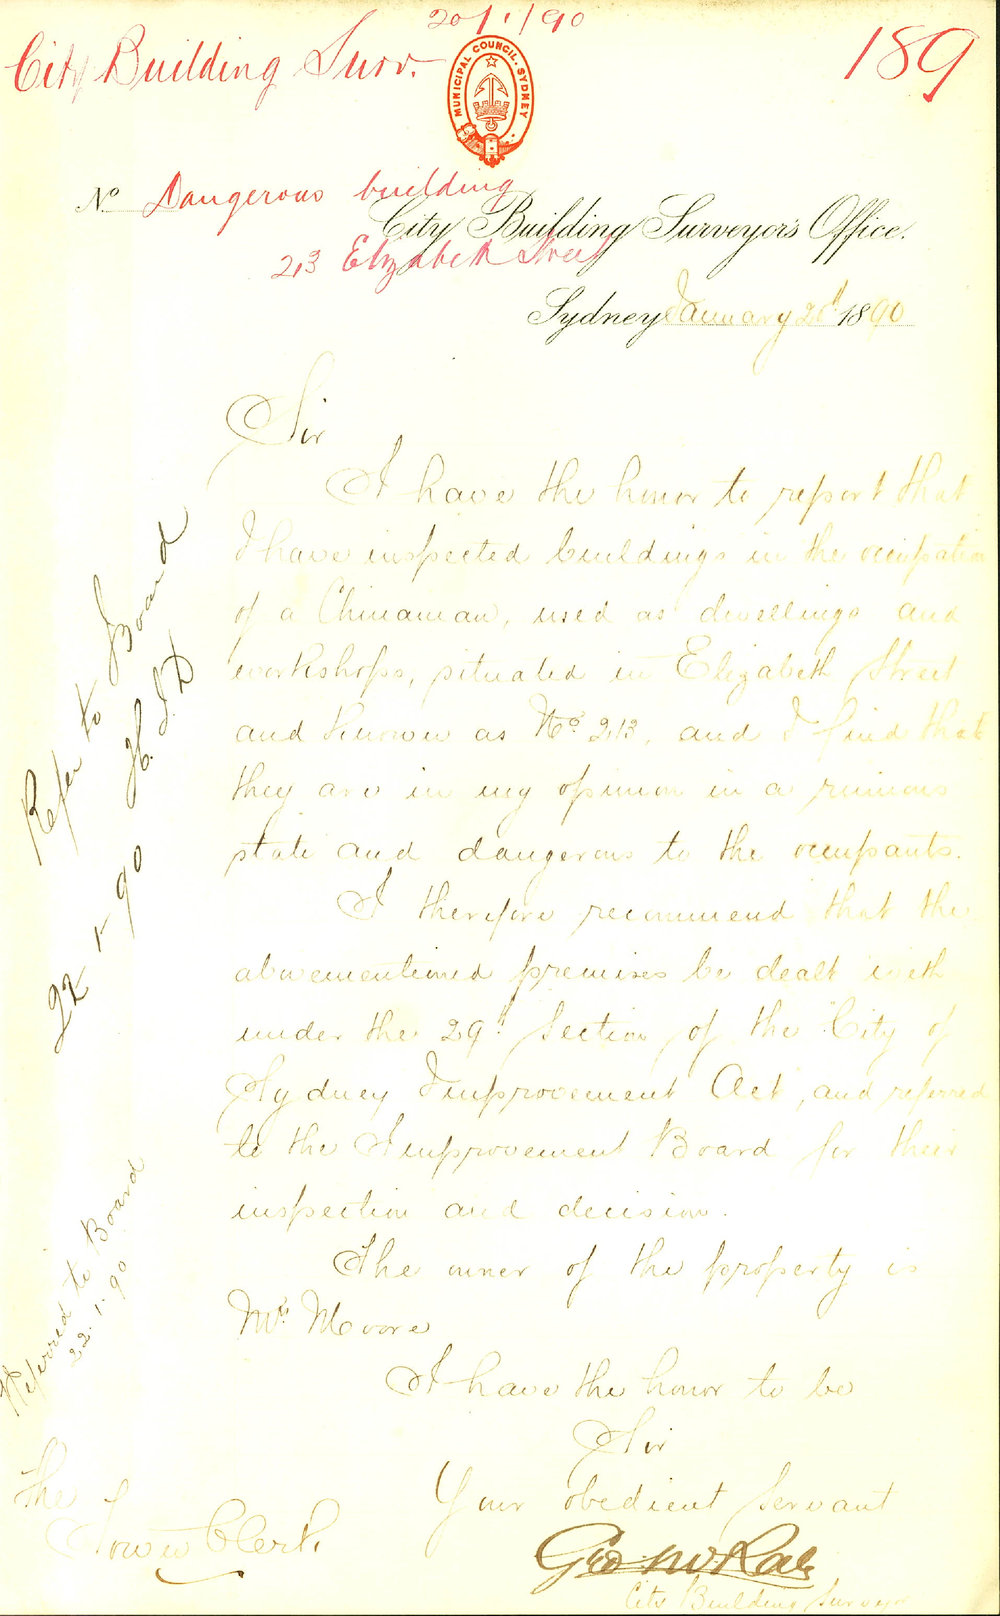 20/1/90
City Building Surv.
189
MUNICIPAL COUNCIL. SYDNEY
No Dangerous building
City Building Surveyor's Office.
213 Elizabeth Street
Sydney January 20th 1890
Sir
I have the honor to report that
I have inspected buildings in the occupation
of a Chinaman, used as dwellings and
workshops, situated in Elizabeth Street
and known as No. 213, and I find that
they are in my opinion in a ruinous
state and dangerous to the occupants.
I therefore recommend that the
abovementioned premises be dealt with
under the 29th Section of the City of
Sydney Improvement Act, and referred
to the Improvement Board for their
inspection and decision.
The owner of the property is
Moore
I have the honor to be
Sir
Your obedient Servant
Geo McRae
City Building Surveyor
The
Town Clerk.
Refer to Board
22-1-90
Referred to Board
22.1.90